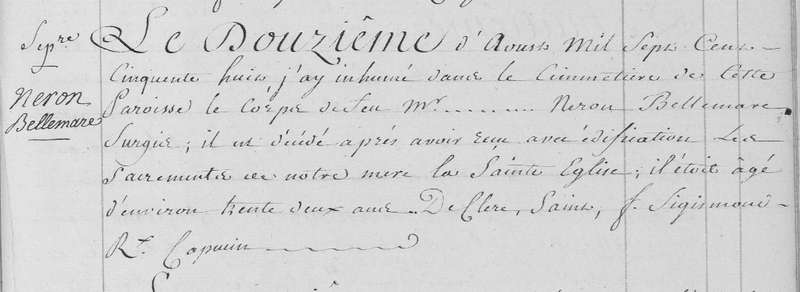 Sepre
Neron
Bellemare
Le Douziême d'Aoust Mil Sept Cent
Cinquente huit j'ay inhumé dans le Cimmetiere de Cette
Paroisse le Corps de feu Mr. ......... Neron Bellemare
Surgié; il est décédé aprés avoir reçu avec édification Les
Sacrements de notre mere la Sainte Eglise; il étoit âgé
d'environ trente deux ans. De Clere, Saint, f. Sigismond
Rx. Capucin